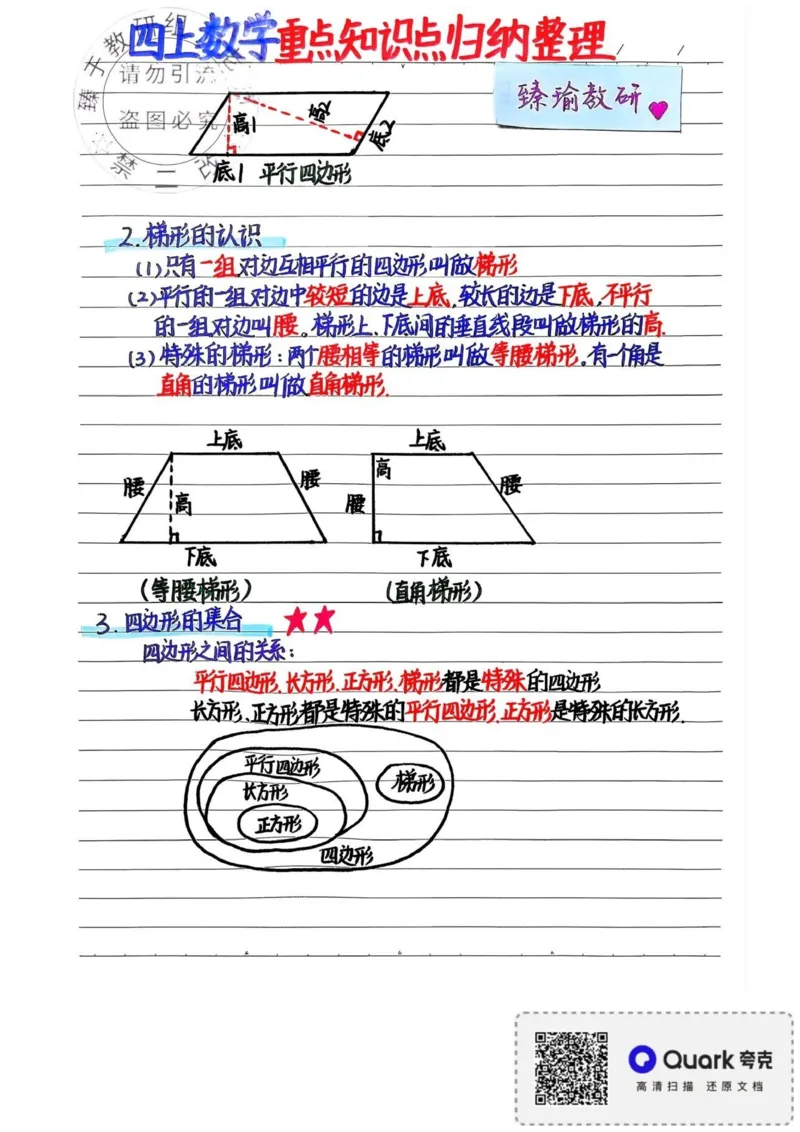 四上数学重点知识点归纳整理
臻于教研组
请勿引流
盗图必究
禁二
臻瑜教研
高1
高2
底2
底1 平行四边形
2.梯形的认识
(1)只有一组对边互相平行的四边形叫做梯形
(2)平行的一组对边中较短的边是上底,较长的边是下底,不平行
的一组对边叫腰。梯形上、下底间的垂直线段叫做梯形的高.
(3)特殊的梯形:两个腰相等的梯形叫做等腰梯形。有一个角是
直角的梯形叫做直角梯形.
上底 上底
腰 高 腰 高 腰 腰
下底 下底
(等腰梯形) (直角梯形)
3.四边形的集合
四边形之间的关系:
平行四边形、长方形、正方形、梯形都是特殊的四边形
长方形、正方形都是特殊的平行四边形,正方形是特殊的长方形.
平行四边形
梯形
长方形
正方形
四边形
Quark夸克
高清扫描 还原文档